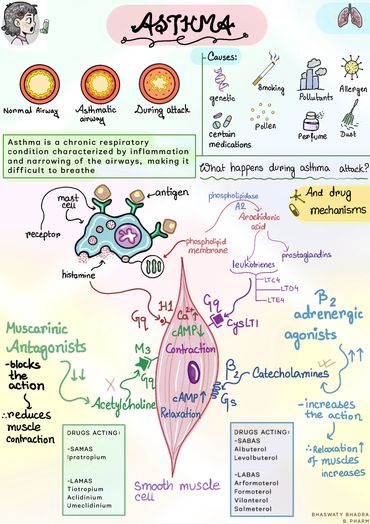 ASTHMA
Causes:
genetic
Smoking
Pollutants
Allergen
certain
medications
Pollen
Perfume
Dust
Normal Airway
Asthmatic
airway
During attack
Asthma is a chronic respiratory
condition characterized by inflammation
and narrowing of the airways, making it
difficult to breathe
What happens during asthma attack?
And drug
mechanisms
mast
cell
antigen
receptor
histamine
phospholipid
membrane
phospholipidase
A2
Arachidonic
acid
leukotrienes
prostaglandins
LTC4
LTD4
LTE4
H1
Gq
Ca2+ ↑
cAMP ↓
Contraction
Gq
CysLT1
M3
Gq
Acetylcholine
cAMP ↑
Relaxation
β2
Gs
Catecholamines
Smooth muscle
cell
Muscarinic
Antagonists
-blocks
the action
∴ reduces
muscle
contraction
β2
adrenergic
agonists
-increases
the action
∴ Relaxation ↑
of muscles
increases
DRUGS ACTING:
-SAMAS
Ipratropium
-LAMAS
Tiotropium
Aclidinium
Umeclidinium
DRUGS ACTING:
-SABAS
Albuterol
Levalbuterol
-LABAS
Arformoterol
Formoterol
Vilanterol
Salmeterol
BHASWATY BHADRA
B. PHARM